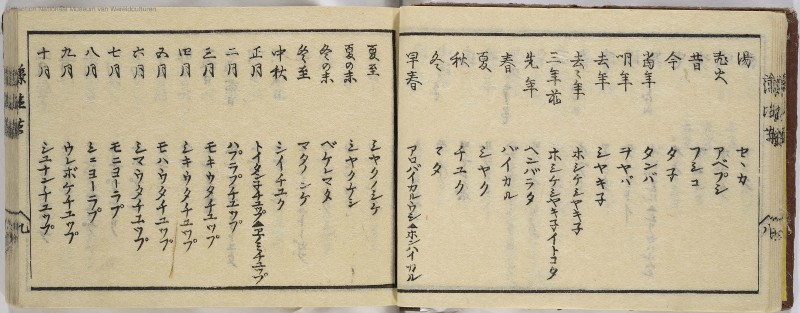 湯 セヽカ
昔 フシコ
今 タ子
當年 タンバ
明年 ヲヤパ
去年 シヤキ子
去々年 ホシケシヤキ子
三年前 ホシケシヤキ子イトコタ
先年 ヘンバラタ
春 バイカル
夏 シヤク
秋 チユク
冬 マタ
早春 アロバイカルウシ▲ホシハイカル
八
夏至 シヤクノシケ
夏の末 シヤクケシ
冬の末 ベケレマタ
冬至 マタノシケ
中秋 シイチユク
正月 トイタンチユツプ
二月 ハプラプチユツプ
三月 モキウタチユツプ
四月 シキウタチユツプ
五月 モハウタチユツプ
六月 シマウタチユツプ
七月 モニヨーラプ
八月 シニヨーラプ
九月 ウレポケチユツプ
十月 シユナンチユツプ
九